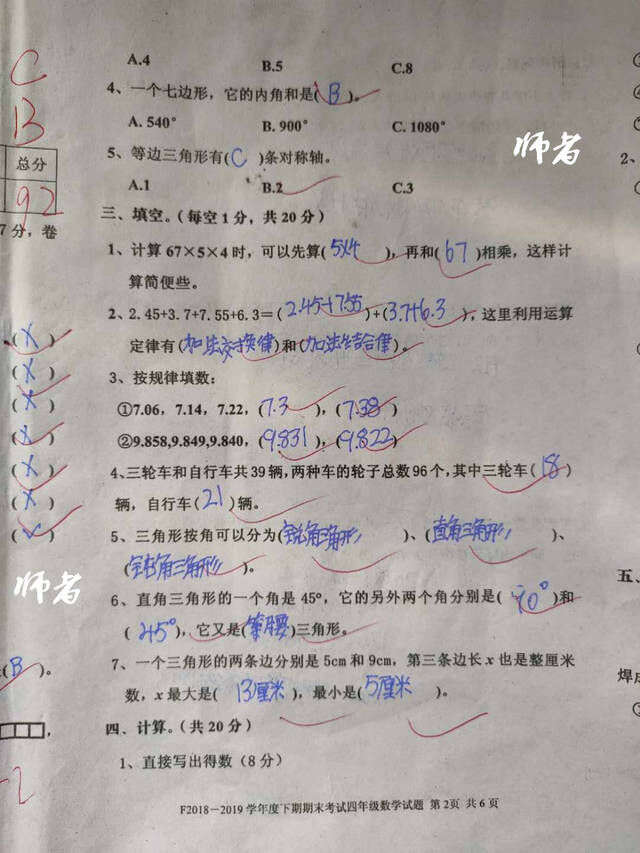 A.4 B.5 C.8
4、一个七边形，它的内角和是(B)。
A. 540° B. 900° C. 1080°
5、等边三角形有(C)条对称轴。
A.1 B.2 C.3
三、填空。（每空1分，共20分）
1、计算 67×5×4 时，可以先算(5×4)，再和(67)相乘，这样计
算简便些。
2、2.45+3.7+7.55+6.3=(2.45+7.55)+(3.7+6.3)，这里利用运算
定律有(加法交换律)和(加法结合律)。
3、按规律填数：
①7.06，7.14，7.22，(7.3)，(7.38)
②9.858,9.849,9.840，(9.831)，(9.822)
4、三轮车和自行车共39辆，两种车的轮子总数96个，其中三轮车(18)
辆，自行车(21)辆。
5、三角形按角可以分为(锐角三角形)、(直角三角形)、
(钝角三角形)。
6、直角三角形的一个角是45°，它的另外两个角分别是(90°)和
(45°)，它又是(等腰)三角形。
7、一个三角形的两条边分别是5cm和9cm，第三条边长x也是整厘米
数，x最大是(13厘米)，最小是(5厘米)。
四、计算。（共20分）
1、直接写出得数（8分）
F2018－2019学年度下期期末考试四年级数学试题 第2页 共6页
C
B
总分
92
7分，卷
(×)
(×)
(×)
(×)
(×)
(×)
(✓)
师者
(B)。
师者
2、
五、
焊成